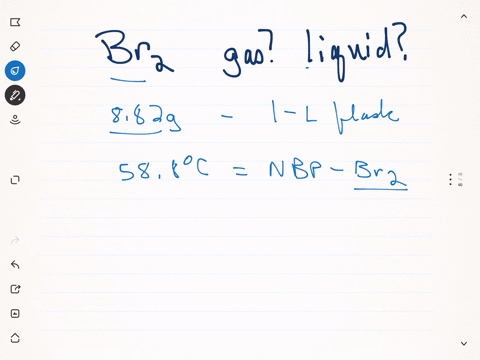 Br₂ gas? liquid?
8.82g - 1-L flask
58.8°C = NBP - Br₂